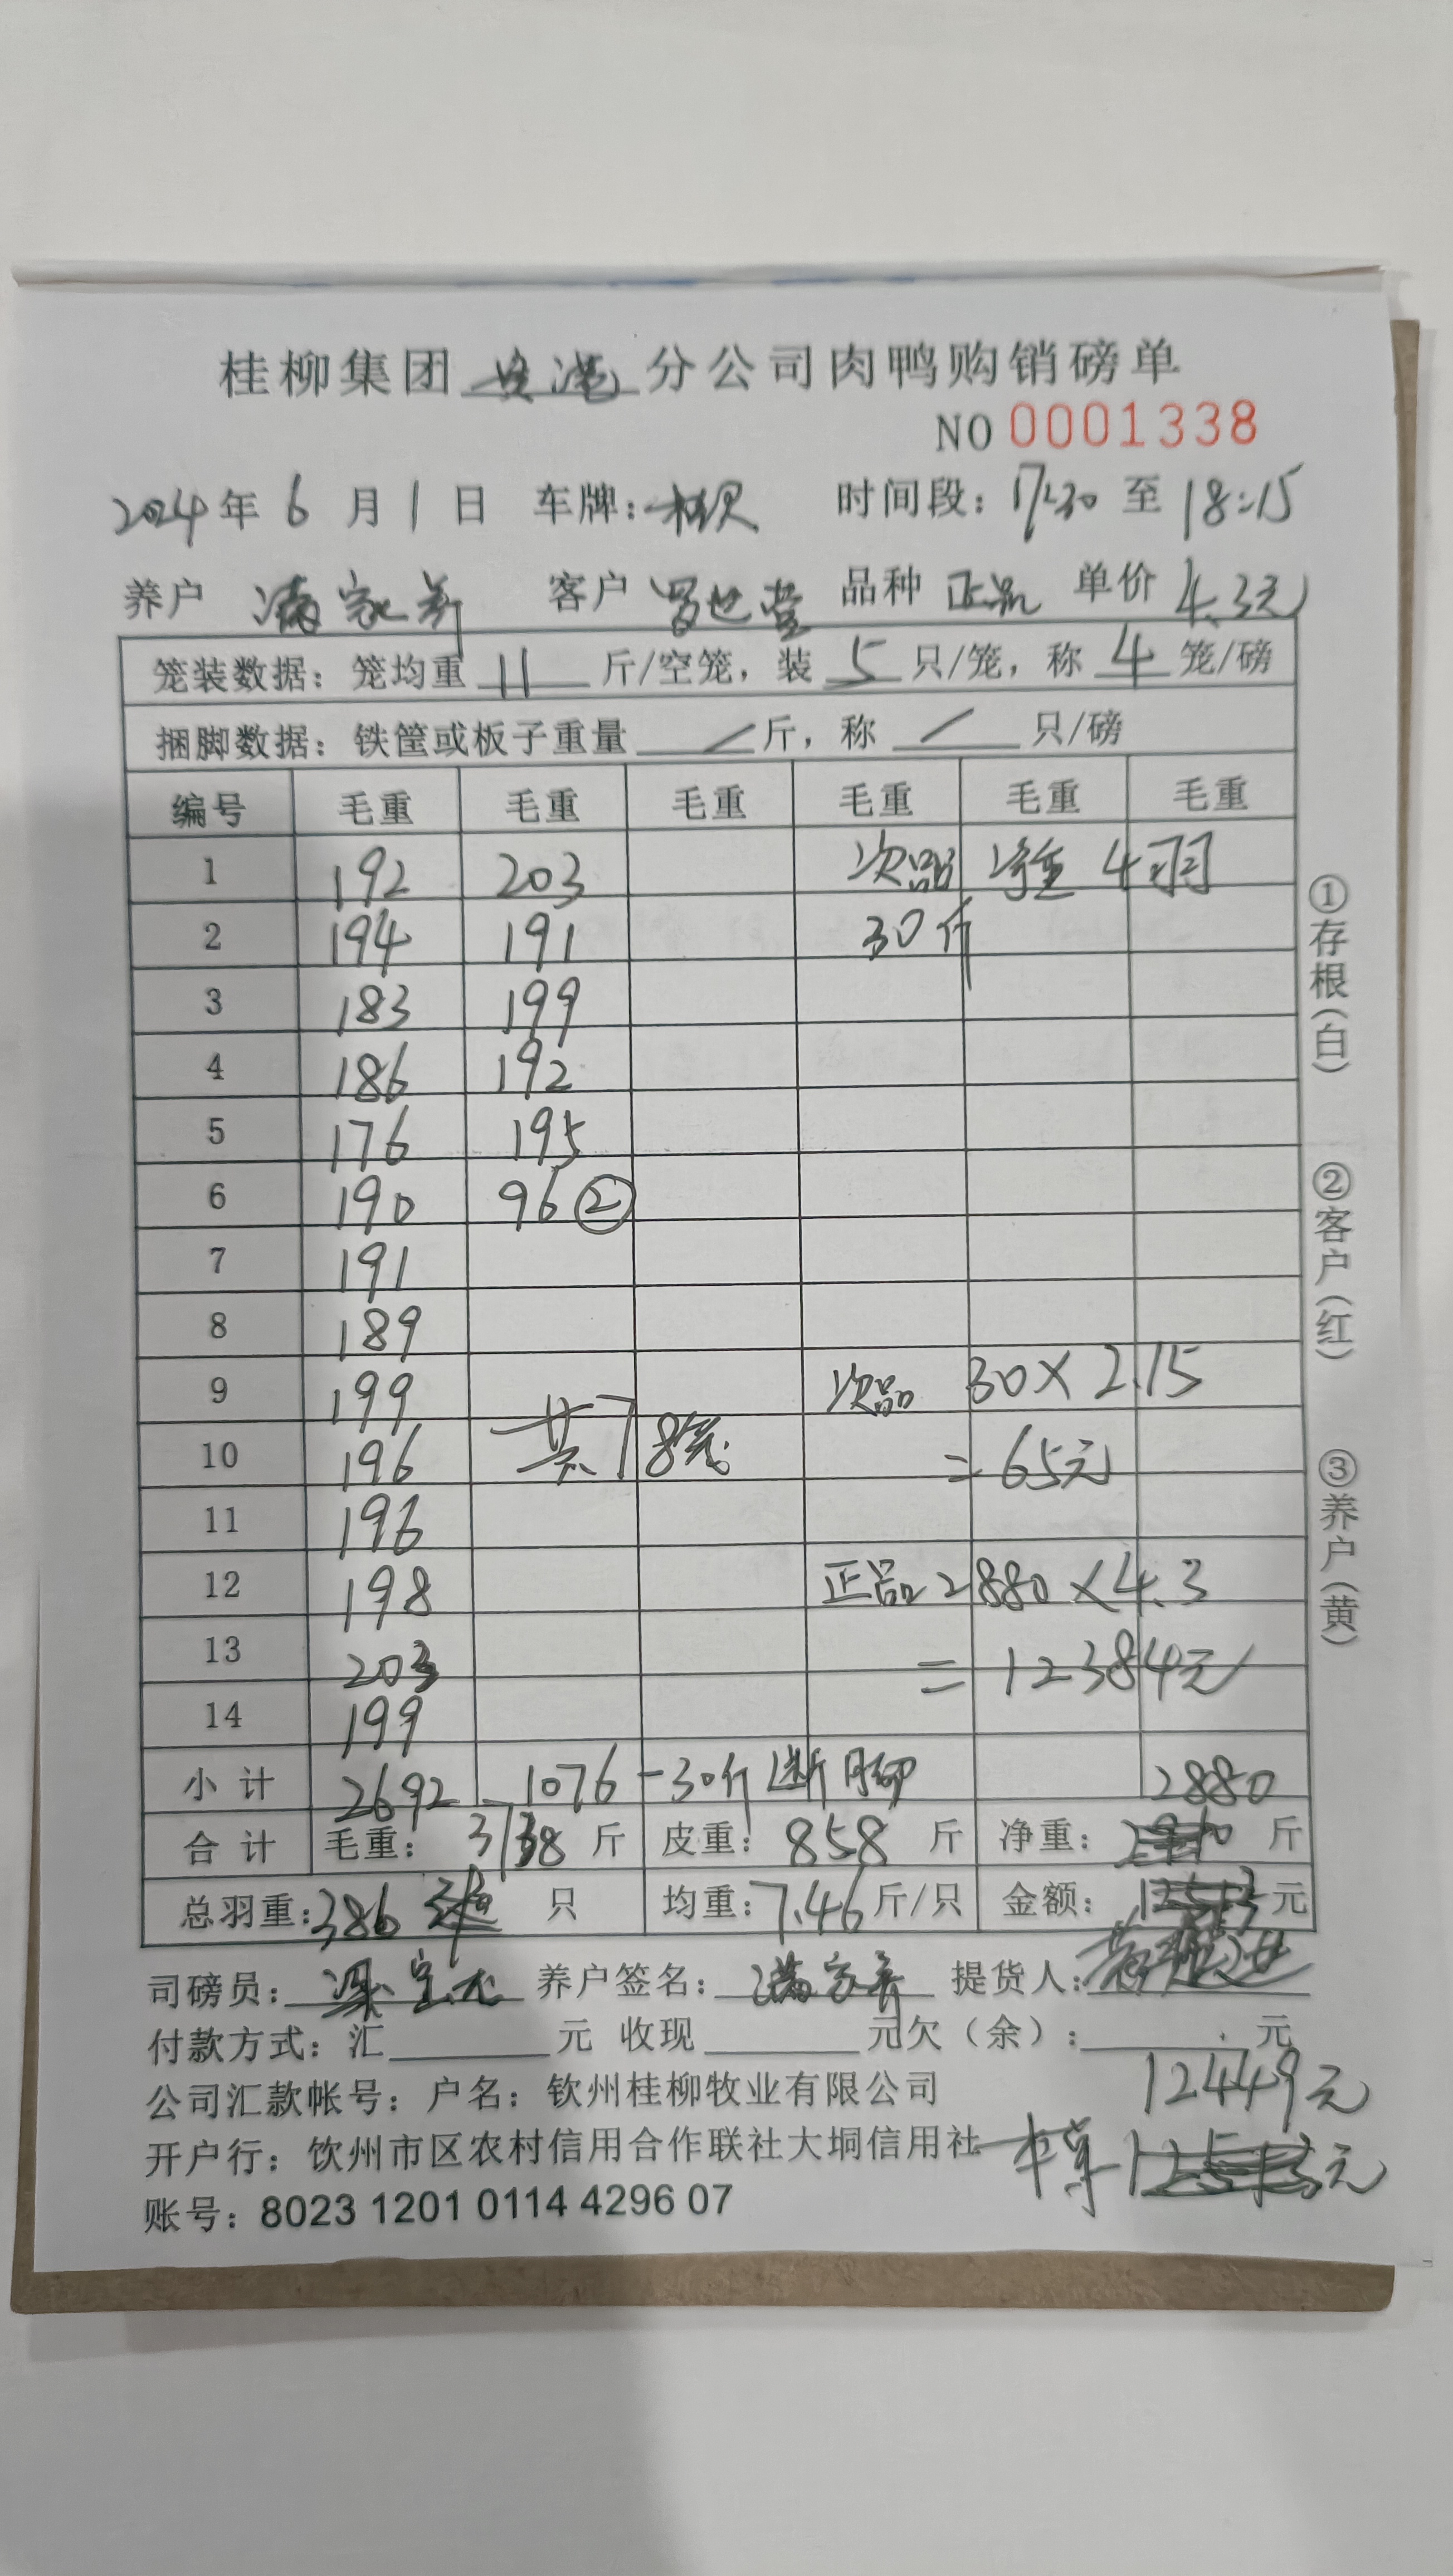 桂柳集团 贵港 分公司肉鸭购销磅单
NO 0001338
2024年6月1日 车牌: 时间段: 17:30 至 18:15
养户 客户 罗世莹 品种 正品 单价 4.3元
笼装数据: 笼均重 11 斤/空笼, 装 5 只/笼, 称 4 笼/磅
捆脚数据: 铁筐或板子重量 / 斤, 称 / 只/磅
编号 毛重 毛重 毛重 毛重 毛重 毛重
1 192 203 次品 净重 4羽
2 194 191 30斤
3 183 199
4 186 192
5 176 195
6 190 96 ②
7 191
8 189
9 199 次品 30×2.15
10 196 共78笼 =65元
11 196
12 198 正品2880×4.3
13 203 =12384元
14 199
小计 2692 1076 -30斤 断脚 2880
合计 毛重: 3738 斤 皮重: 858 斤 净重: 斤
总羽重: 386 只 均重: 7.46 斤/只 金额: 元
司磅员: 养户签名: 提货人:
付款方式: 汇 元 收现 元欠(余): 元
12449元
公司汇款帐号: 户名: 钦州桂柳牧业有限公司
开户行: 钦州市区农村信用合作联社大垌信用社
元
账号: 8023 1201 0114 4296 07
①存根(白) ②客户(红) ③养户(黄)